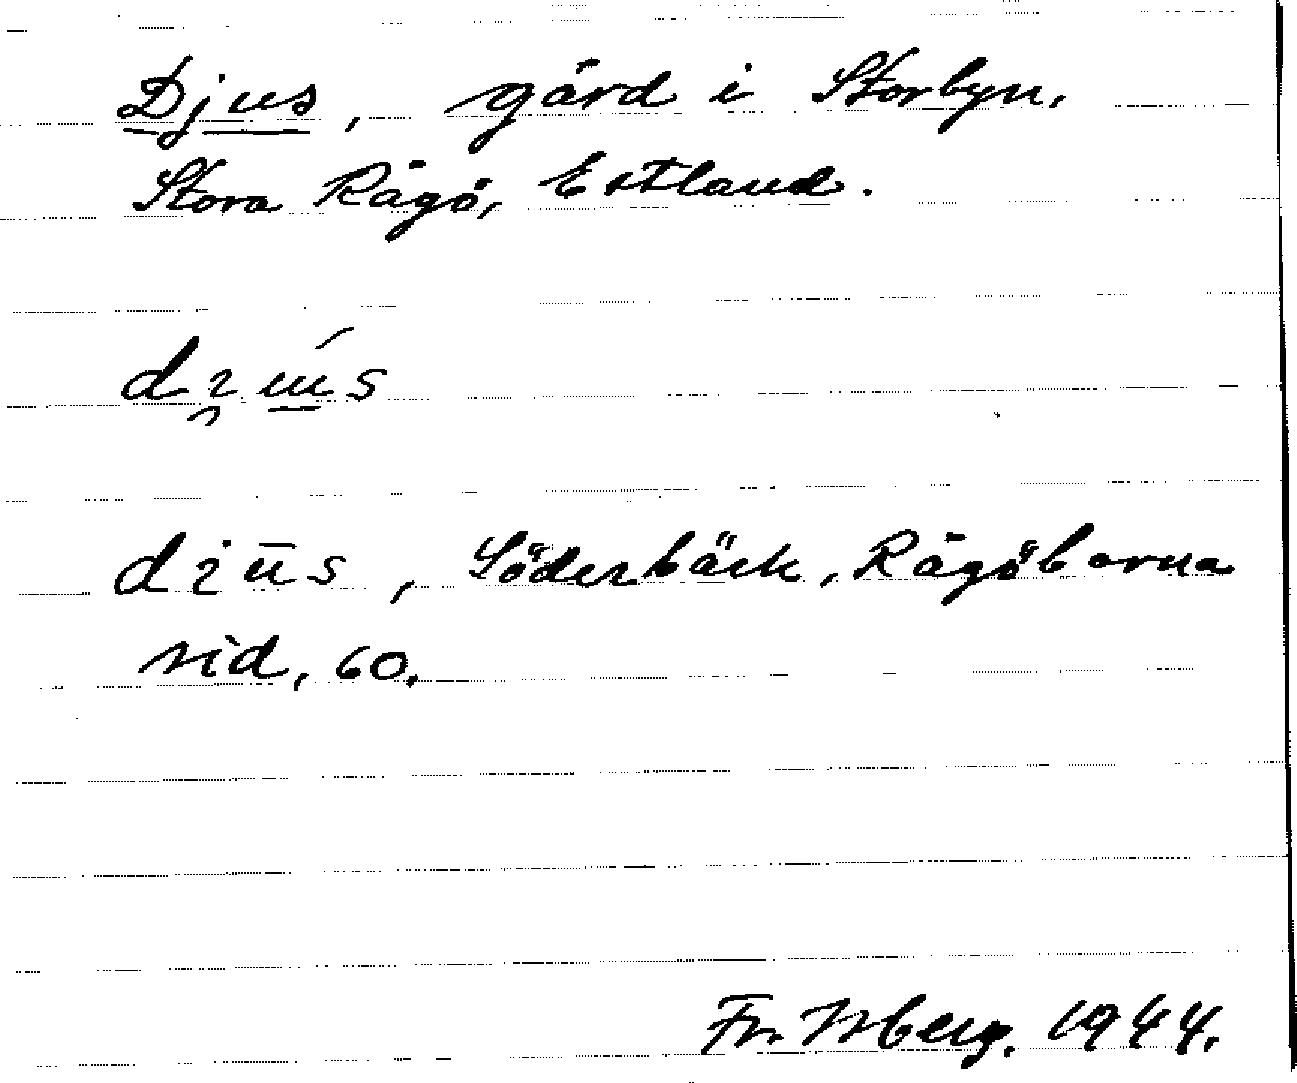 Djus, gård i Storbyn.
Stora Rågö, Estland.
djūs, Söderbäck, Rågöborna
sid. 60.
Fr. Wberg. 1944.